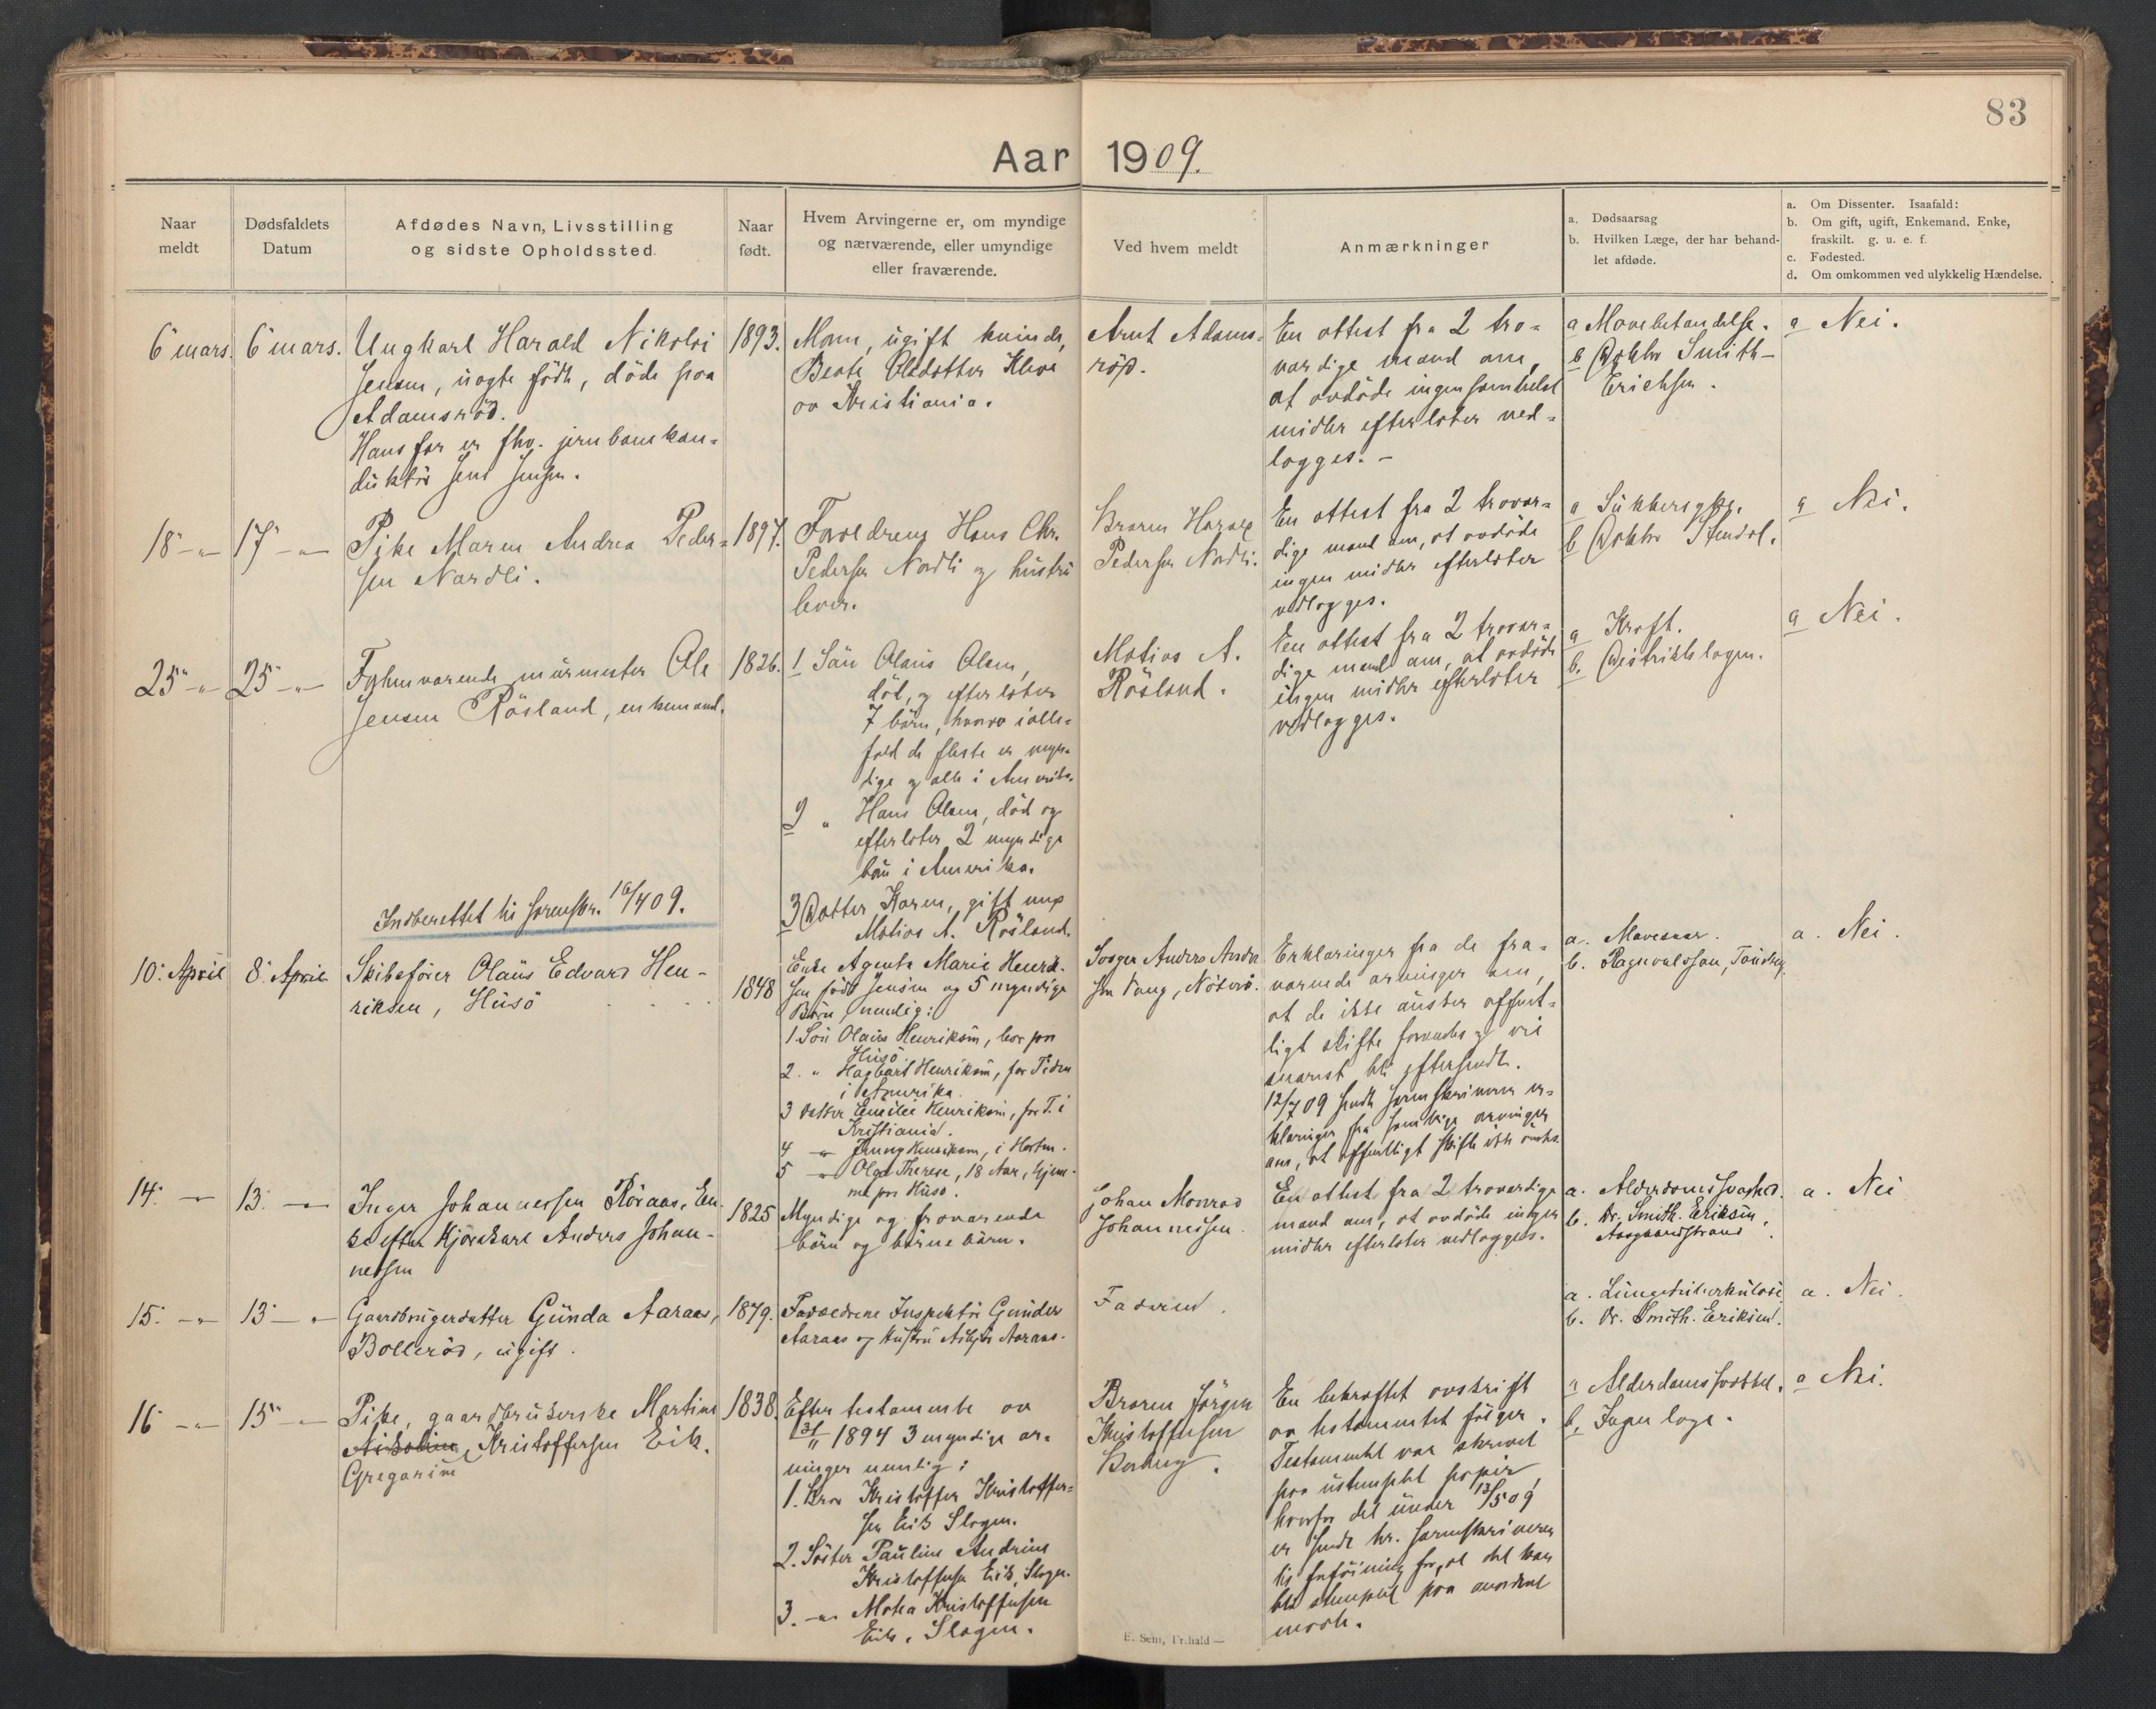 83
Aar 1909.
Naar
meldt
Dødsfaldets
Datum
Afdødes Navn, Livsstilling
og sidste Opholdssted.
Naar
født.
Hvem Arvingerne er, om myndige
og nærværende, eller umyndige
eller fraværende.
Ved hvem meldt
Anmærkninger
a. Dødsaarsag
b. Hvilken Læge, der har behand-
let afdøde.
a. Om Dissenter. Isaafald:
b. Om gift, ugift, Enkemand, Enke,
fraskilt. g. u. e. f.
c. Fødested.
d. Om omkommen ved ulykkelig Hændelse.
6 mars. 6 mars.
Ungkarl Harald Nikolai
Jensen, uægte född, döde paa
Adamsröd.
Hans far er fhv. jernbanekon=
duktör Jens Jensen.
1893.
Mor, ugift kvinde,
Beate Olsdatter Kleve
av Kristiania.
Arnt Adams=
röd.
En attest fra 2 tro=
værdige mænd om,
at avdöde ingensomhelst
midler efterlater ved=
lægges. -
a Mavebetændelse.
b Doktor Smith-
Erichsen.
a Nei.
18 -"- 17 -"-
Pike Maren Andrea Peder=
sen Nordli.
1897.
Forældrene Hans Chr.
Pedersen Nordli og hustru
lever.
Broren Harald
Pedersen Nordli.
En attest fra 2 trovær=
dige mænd om, at avdöde
ingen midler efterlater
vedlægges.
a Sukkersyke.
b Doktor
a Nei.
25 -"- 25 -"-
Forhenværende murmester Ole
Jensen Råsland, enkemand.
1826.
1 Sön Olaus Olsen,
död, og efterlater
7 börn, hvorav ialle=
fald de fleste er myn=
dige og alle i Amerika.
2 " Hans Olsen, död og
efterlater 2 myndige
börn i Amerika.
3 Datter Karen, gift med
Matias A. Råsland.
Matias A.
Råsland.
En attest fra 2 trovær=
dige mænd om, at avdöde
ingen midler efterlater
vedlægges.
a Kræft.
b. Distriktslægen.
a Nei.
Indberettet til sorenskr. 16/4 09.
10. April 8. April
Skibsförer Olaüs Edvard Hen-
riksen, Hüsö
1848
Enke Agente Marie Henrik-
sen född Jensen og 5 myndige
Börn nemlig:
1 Sön Olaüs Henriksen, bor paa
Hüsö.
2. " Hagbart Henriksen, for Tiden
i Amerika.
3 Datter Emilie Henriksen, for T. i
Kristiania.
4 -"- Henriksen, i Horten.
5 -"- Olga Therese, 18 Aar, hjem-
me paa Hüsö.
Svoger Anders Andre
sen Vang, Nöterö.
Erklæringer fra de fra=
værende arvinger om,
at de ikke önsker offent=
ligt skifte foranles og vil
snarest bli eftersendt.
12/7 09 sendt sorenskriveren er=
klæringer fra samtlige arvinger
om, at offentligt skifte ikke önskes.
a. Mavesaar.
b. Ragnvaldssen, Tönsberg.
a. Nei.
14. -"- 13. -"-
Inger Johannessen Röraas, En
ke efter Kjörekarl Anders Johan-
nessen
1825
Myndige og fraværende
börn og börnebörn.
Johan Monrad
Johannessen.
En attest fra 2 troværdige
mænd om, at avdöde ingen
midler efterlater vedlægges.
a. Alderdomssvaghed.
b. Dr. Smith. Eriksen,
Aasgaardstrand.
a. Nei
15. -"- 13 -"-
Gaardbrugerdatter Günda Aaraas,
Bolleröd, ugift.
1879.
Forældrene Inspektör Gunder
Aaraas og Hustru Aaraas.
Faderen.
a. Lüngetüberkülose
b. Dr. Smith. Eriksen.
a. Nei.
16 -"- 15 -"-
Pike, gaardbrukerske Martine
Nikoline Kristoffersen Eik.
Gregarine
1838.
Efter testamente av
1894 3 myndige ar=
vinger nemlig:
1. Bror Kristoffer Kristoffer=
sen Eik Slagen.
2. Söster Pauline Andrine
Kristoffersen Eik, Slagen.
3. -"- Kristoffersen
Eik, Slagen.
Broren Jörgen
Kristoffersen
En bekræftet avskrift
av testamentet fölger.
Testamentet var skrevet
paa ustemplet papir,
hvorfor det under 13/5 09
er sendt hr. sorenskriveren
til for, at det kan
bli stemplet paa anordnet
maate.
a Alderdomssvakkel.
b. Ingen læge.
a Nei.
E. Sem, Fr.hald—